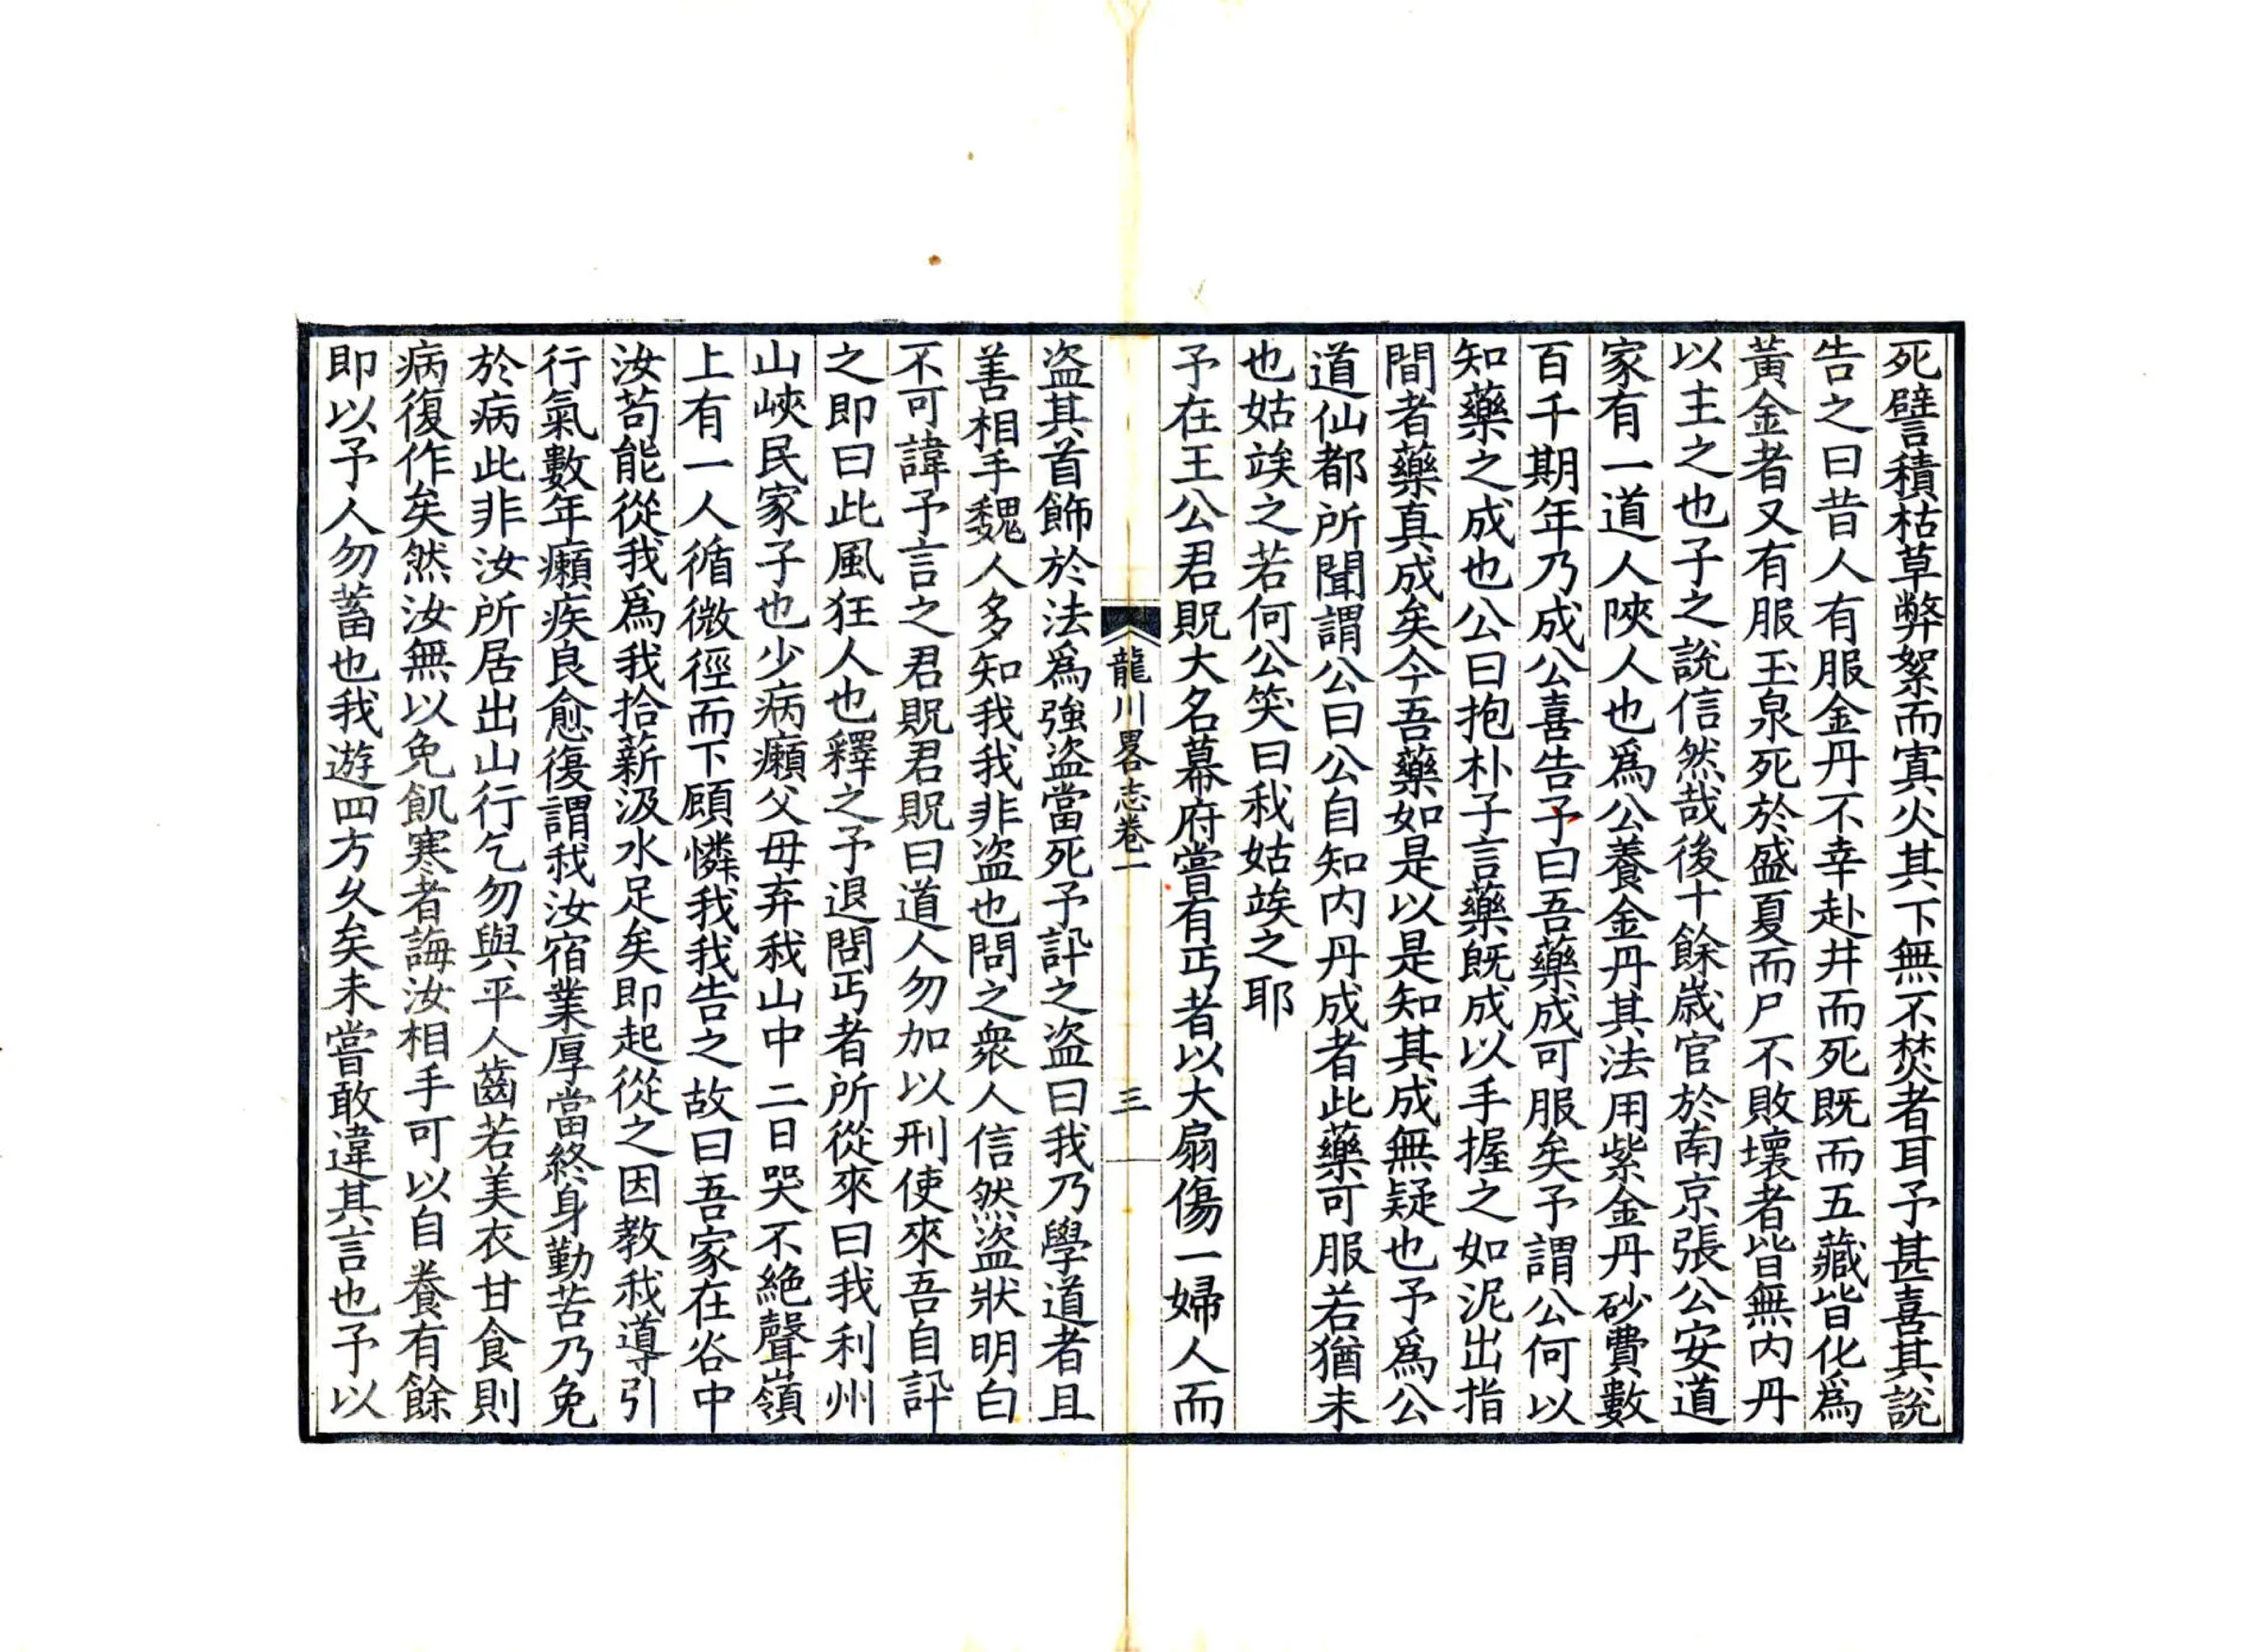 死譬積枯草弊絮而寘火其下無不焚者耳予甚喜其說
告之曰昔人有服金丹不幸赴井而死既而五藏皆化為
黃金者又有服玉泉死於盛夏而尸不敗壞者皆無内丹
以主之也子之說信然哉後十餘歲官於南京張公安道
家有一道人陝人也爲公養金丹其法用紫金丹砂費數
百千期年乃成公喜告予曰吾藥成可服矣予謂公何以
知藥之成也公曰抱朴子言藥既成以手握之如泥出指
間者藥真成矣今吾藥如是以是知其成無疑也予爲公
道仙都所聞謂公曰公自知内丹成者此藥可服若猶未
也姑竢之若何公笑曰我姑竢之耶
予在王公君貺大名幕府嘗有丐者以大扇傷一婦人而
龍川畧志卷一
三
盜其首飾於法爲強盜當死予訊之盜曰我乃學道者且
善相手魏人多知我我非盜也問之衆人信然盜狀明白
不可諱予言之君貺君貺曰道人勿加以刑使來吾自訊
之即曰此風狂人也釋之予退問丐者所從來曰我利州
山峽民家子也少病癩父母弃我山中二日哭不絶聲嶺
上有一人循微徑而下顧憐我我告之故曰吾家在谷中
汝苟能從我爲我拾薪汲水足矣即起從之因教我導引
行氣數年癩疾良愈復謂我汝宿業厚當終身勤苦乃免
於病此非汝所居出山行乞勿與平人齒若美衣甘食則
病復作矣然汝無以免飢寒者誨汝相手可以自養有餘
即以予人勿蓄也我遊四方久矣未嘗敢違其言也予以